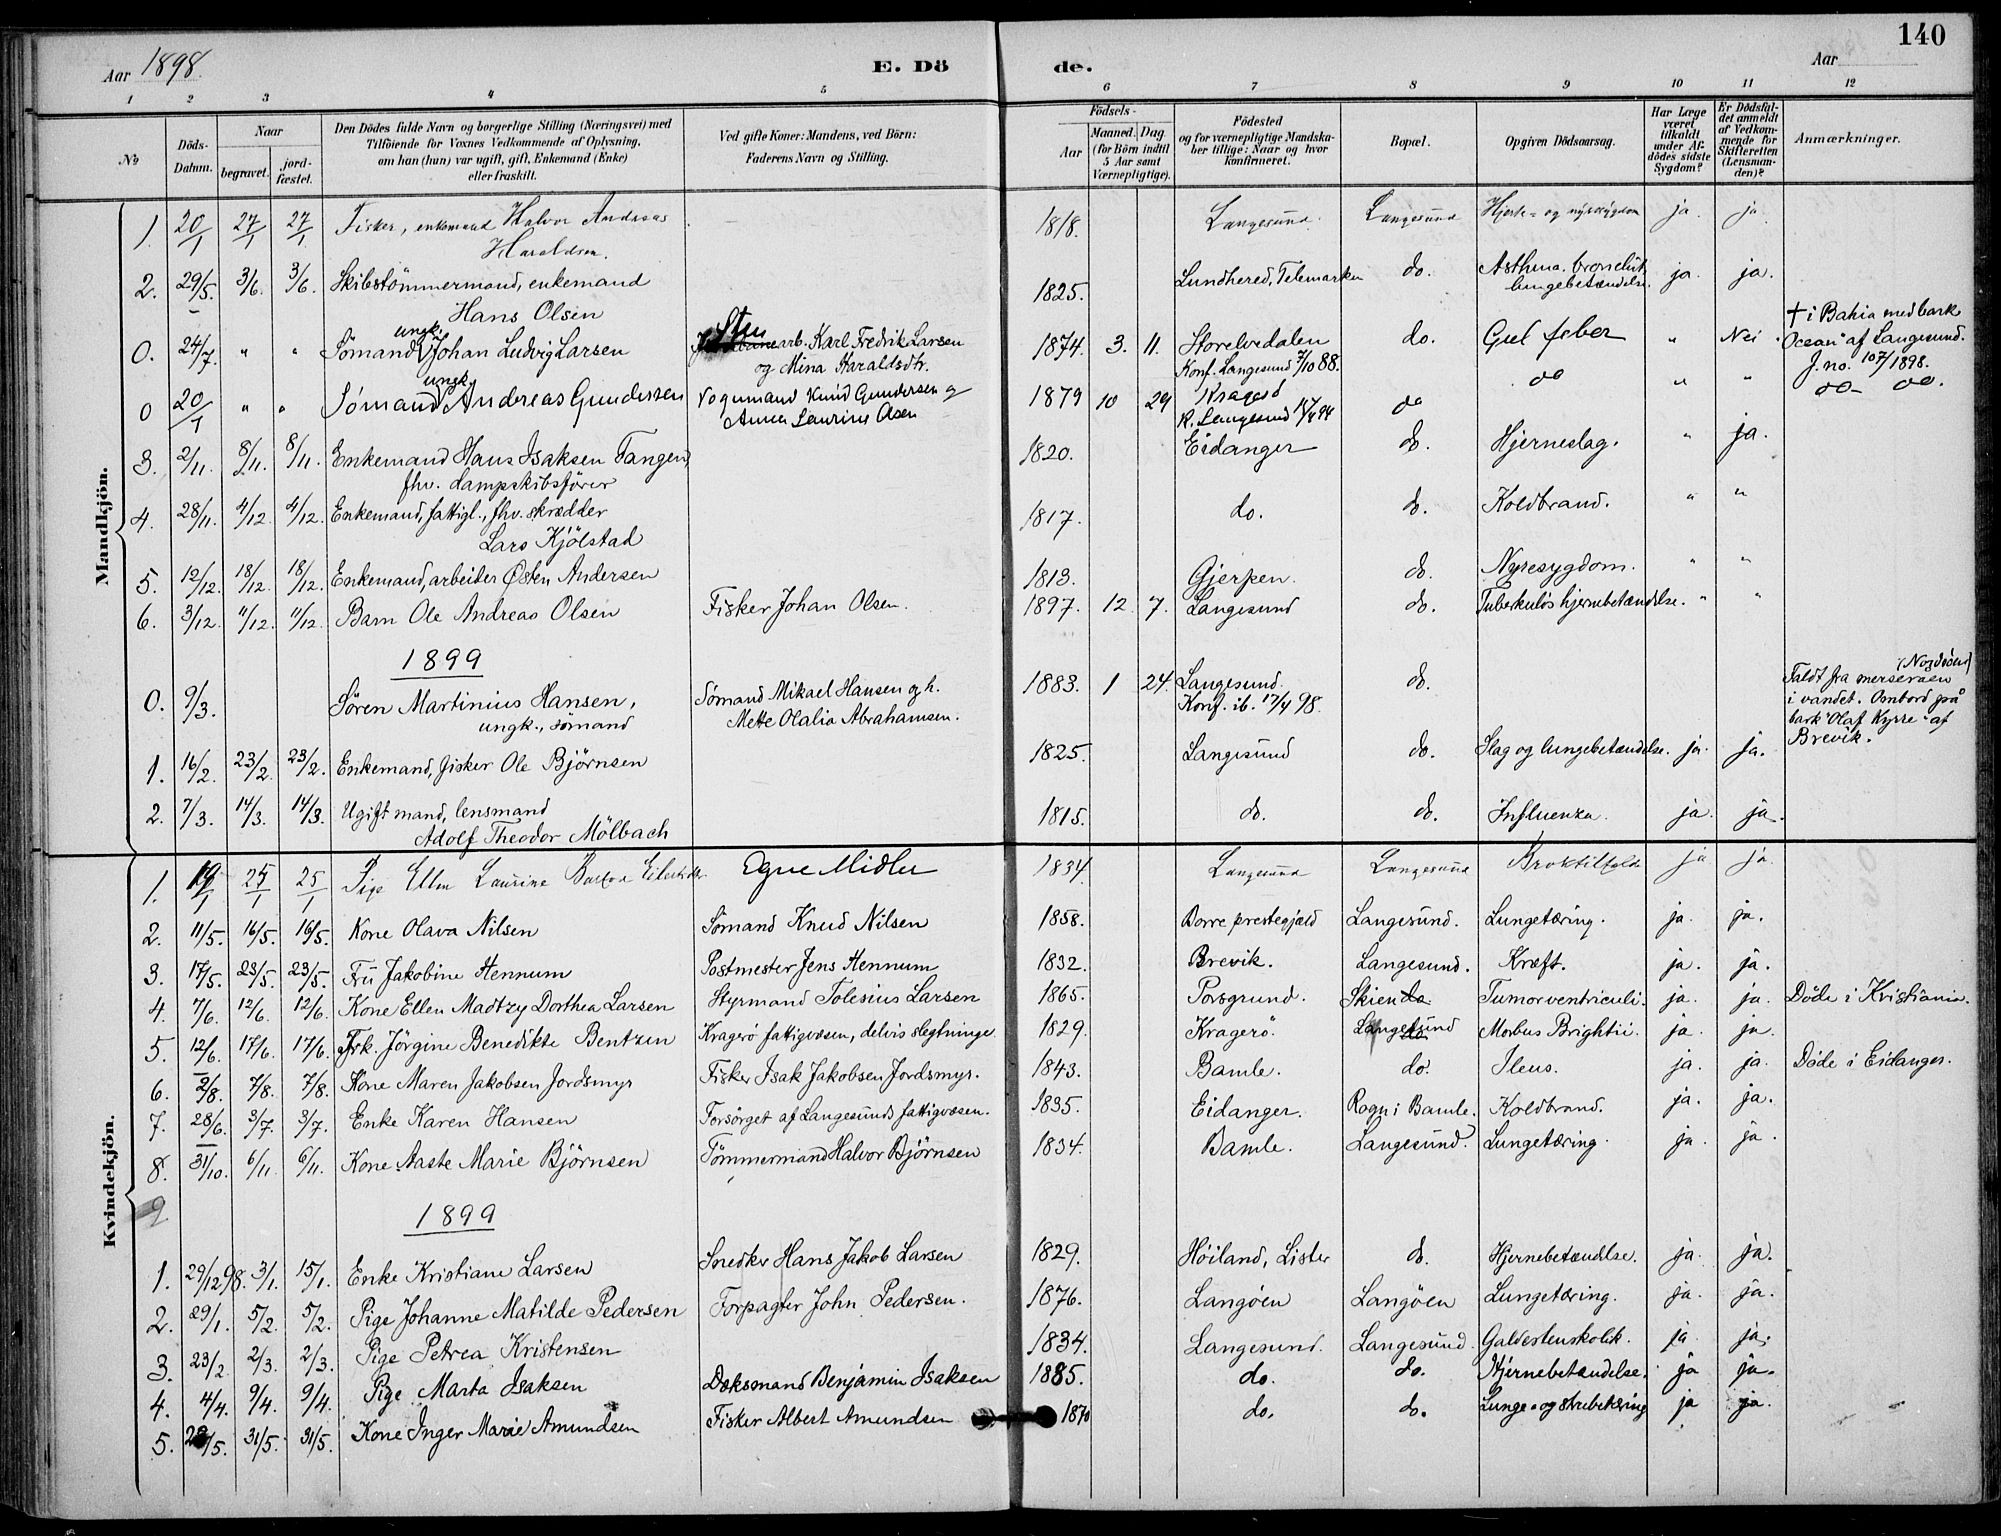 140
Aar 1898.
E. Dö de.
Aar
1 2 3 4 5 6 7 8 9 10 11 12
No
Döds-Datum.
Naar
begravet.
jord-fæstet.
Den Dödes fulde Navn og borgerlige Stilling (Næringsvei) med
Tilföiende for Voxnes Vedkommende af Oplysning,
om han (hun) var ugift, gift, Enkemand (Enke)
eller fraskilt.
Ved gifte Koner: Mandens, ved Börn:
Faderens Navn og Stilling.
Födsels-
Aar
Maaned. Dag.
(for Börn indtil
5 Aar samt
Værnepligtige).
Födested
og for værnepligtige Mandska-
ber tillige: Naar og hvor
konfirmeret.
Bopæl.
Opgiven Dödsaarsag.
Har Læge
været
tilkaldt
under Af-
dödes sidste
Sygdom?
Er Dödsfal-
det anmeldt
af Vedkom-
mende for
Skifteretten
(Lensman-
den)?
Anmærkninger.
Mandkjön.
1. 20/1 27/1 27/1 Fisker, enkemand Halvor Andreas Haraldsen. 1818. Langesund. Langesund Hjerte- og nyresygdom ja. ja
2. 29/5. 3/6. 3/6. Skibstömmermand, enkemand Hans Olsen 1825. Lundhered, Telemarken do. Asthma. bronchit. lungebetændelse. ja. ja.
0. 24/7. " " Sömand ungk. Johan Ludvig Larsen Stuearb. Karl Fredrik Larsen og Mina Haraldsdtr. 1874. 3. 11. Storelvedalen Konf. Langesund 7/10 88. do. Guel feber " Nei. † i Bahia med bark "Ocean" af Langesund. J.no. 107/1898.
0 20/1 " " Sömand ungk. Andreas Gundersen Vognmand Knud Gundersen og Anna Laurine Olsen 1879 10 29 Kragerö K. Langesund do do " " do- do.
3. 2/11. 8/11. 8/11. Enkemand Hans Isaksen Tangen, fhv. dampskibsförer 1820. Eidanger do. Hjerneslag. " ja.
4. 28/11. 4/12. 4/12. Enkemand, fattigl., fhv. skrædder Lars Kjölstad 1817. do. do. Koldbrand. " "
5. 12/12. 18/12. 18/12. Enkemand, arbeider Østen Andersen 1813. Gjerpen. do. Nyresygdom. " "
6. 3/12. 11/12. 11/12. Barn Ole Andreas Olsen Fisker Johan Olsen. 1897. 12. 7. Langesund do. Tuberkulös hjernebetændelse. " "
1899
0. 9/3. Sören Martinius Hansen, ungk., sömand Sömand Mikael Hansen og h. Mette Olalia Abrahamsen. 1883. 1 24. Langesund. Konf. ib. 17/4 98. do. Faldt fra merseraen (Nordsöen) i vandet. Ombord på bark "Olaf Kyrre" af Brevik.
1. 16/2. 23/2. 23/2. Enkemand, fisker Ole Björnsen 1825. Langesund do. Slag og lungebetændelse. ja. ja.
2. 7/3. 14/3. 14/3. Ugift mand, lensmand Adolf Theodor Mölbach 1815. do. do. Influenza. ja. ja.
Kvindekjön.
1. 19/1 25/1 25/1 Pige Ellen Laurine Egne Midler 1834. Langesund Langesund Broktilfelde ja ja.
2. 11/5. 16/5. 16/5. Kone Olava Nilsen Sömand Knud Nilsen 1858. Borre prestegjæld Langesund. Lungetæring. ja. ja.
3. 17/5. 23/5. 23/5. Frü Jakobine Hennum Postmester Jens Hennum 1832. Brevik. Langesund. Kræft. ja. ja.
4. 7/6. 12/6. 12/6. Kone Ellen Madtzy Dorthea Larsen Styrmand Tolesius Larsen 1865. Porsgrund. Skien do. Tumor ventriculi. ja. ja. Döde i Kristiania.
5. 12/6. 17/6. 17/6. Frk. Jörgine Benedikte Bentzen Kragerö fattigvæsen, delvis slegtninge 1829. Kragerö. Langesund do. Morbus Brightii. ja. ja.
6. 2/8. 7/8. 7/8. Kone Maren Jakobsen Jordsmyr Fisker Isak Jakobsen Jordsmyr. 1843. Bamle. do. Ileus. ja. ja. Döde i Eidanger.
7. 28/6. 3/7. 3/7. Enke Karen Hansen Forsörget af Langesunds fattigvæsen. 1835. Eidanger. Rogn i Bamle. Koldbrand. ja. ja.
8. 31/10. 6/11. 6/11. Kone Aaste Marie Björnsen Tömmermand Halvor Björnsen 1834. Bamle. Langesund. Lungetæring. ja. ja.
9
1899
1. 29/12 98. 3/1. 15/1. Enke Kristiane Larsen Snedker Hans Jakob Larsen 1829. Höiland, Lister do. Hjernebetændelse. ja. ja.
2. 29/1. 5/2. 5/2. Pige Johanne Matilde Pedersen Forpagter John Pedersen. 1876. Langöen Langöen Lungetæring. ja. ja.
3. 23/2. 2/3. 2/3. Pige Petrea Kristensen 1834. Langesund. Langesund. Galdestenskolik. ja. ja.
4. 4/4. 9/4. 9/4. Pige Marta Isaksen Dæksmand Benjamin Isaksen 1885. do. do. Hjernebetændelse. ja ja.
5. 31/5. 31/5. Kone Inger Marie Amundsen Fisker Albert Amundsen 1870 do. do. Lunge- og strubetæring ja ja.